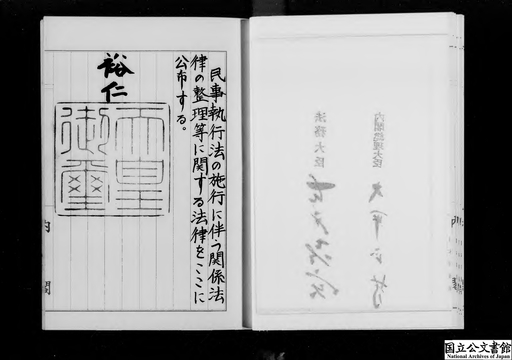 民事執行法の施行に伴う関係法
律の整理等に関する法律をここに
公布する。
裕仁
天皇
御璽
内
閣
内閣総理大臣
法務大臣
国立公文書館
National Archives of Japan